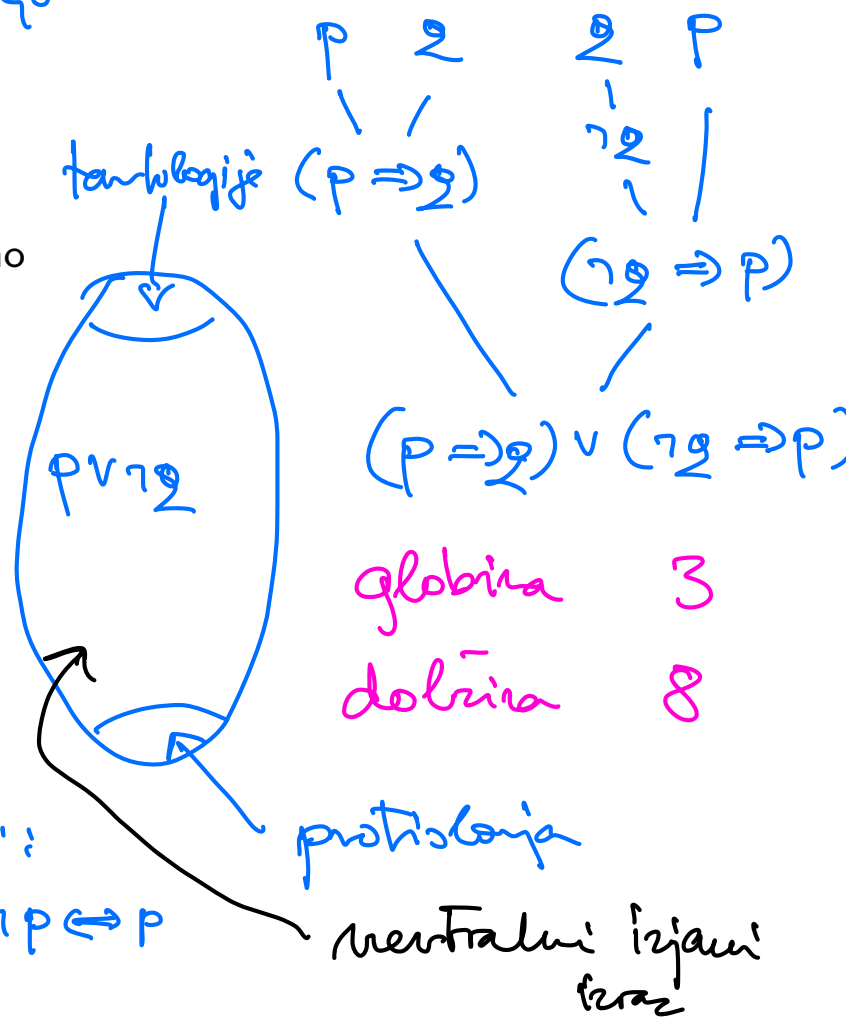 p q q p
¬q
tautologije (p ⇒ q)
(¬q ⇒ p)
no
p ∨ ¬q
(p ⇒ q) ∨ (¬q ⇒ p)
globina 3
dolžina 8
protislovja
¬p ⇔ p
nevtralni izjavni
izraz